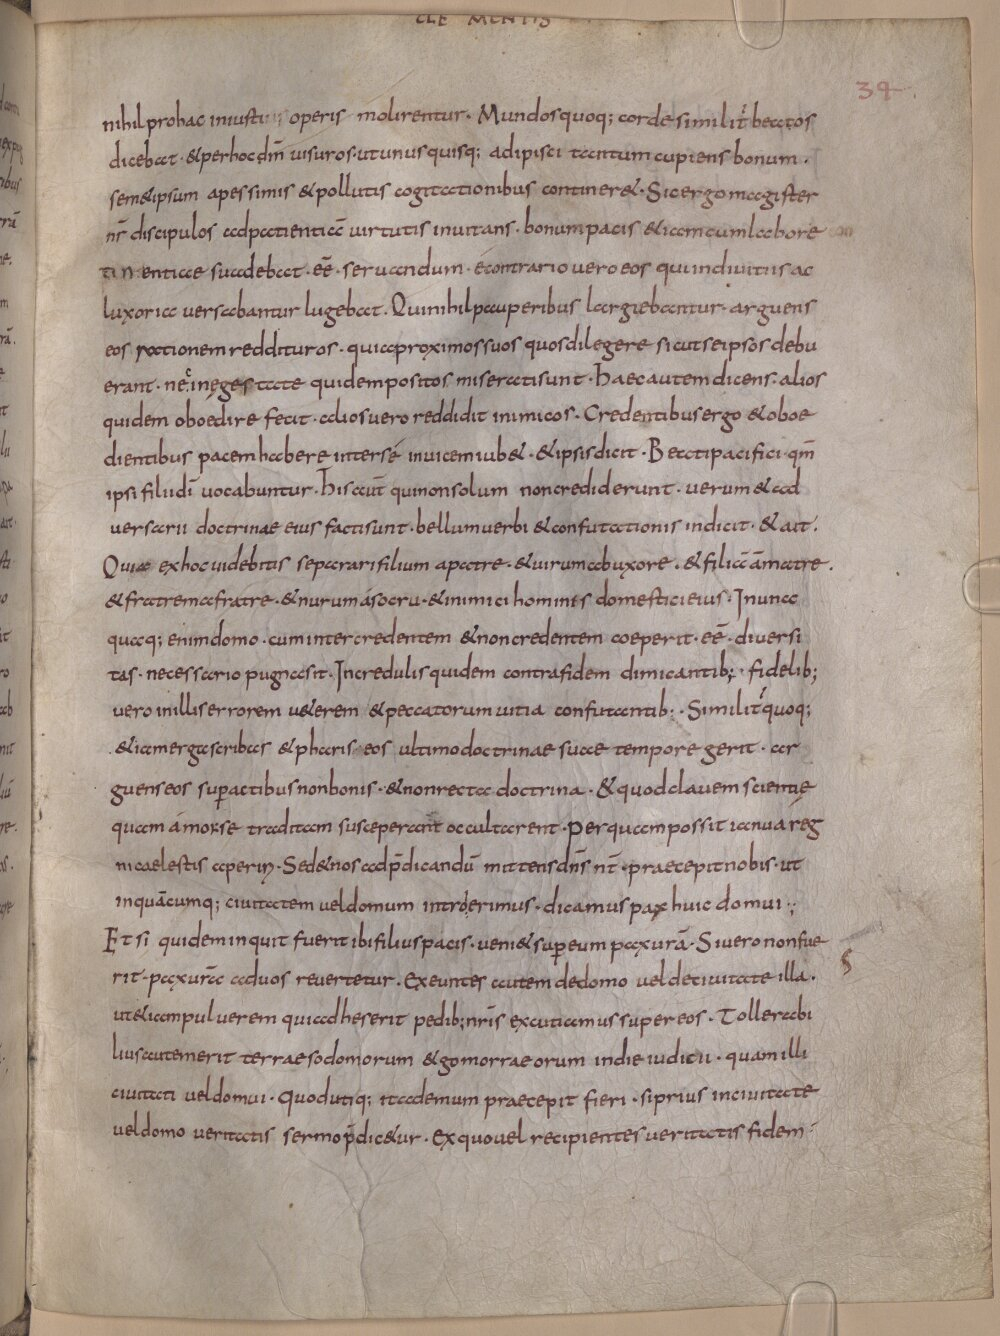 CLEMENTIS
34
nihil prohac iniusti operis molirentur. Mundos quoq; corde similiť beatos
dicebat. & per hoc dm̄ uisuros. ut unus quisq; adipisci tantum cupiens bonum.
sem& ipsum a pessimis & pollutis cogitationibus contineret. Sic ergo magister
nr̄ discipulos ad patientiā uirtutis inuitans. bonum pacis etiam cum labore
tinentiae suadebat. eē. seruandum. econtrario uero eos qui in diuitiis ac
luxoria uersabantur lugebat. Qui nihil pauperibus largiebantur. arguens
eos rationem reddituros. quia proximos suos quos diligere sicut se ipsos debu
erant. nec in egestate quidem positos miserati sunt. Haec autem dicens. alios
quidem oboedire fecit. alios uero reddidit inimicos. Credentibus ergo & oboe
dientibus pacem habere inter se inuicem iub&. & ipsis dicit. Beati pacifici. qm̄
ipsi filii dī uocabuntur. His aut̄ qui non solum non crediderunt. uerum & ad
uersarii doctrinae eius facti sunt. bellum uerbi & confutationis indicit. & ait.
Quia ex hoc uidebitis separari filium a patre. & uirum ab uxore. & filiā a matre.
& fratrem a fratre. & nurum a socru. & inimici hominis domestici eius. In una
quaq; enim domo. cum inter credentem & non credentem coeperit. eē. diuersi
tas. necessario pugna sit. Incredulis quidem contra fidem dimicantib;. fidelib;
uero in illis errorem u&erem & peccatorum uitia confutantib;. Similiť quoq;
& iam erga scribas & pharis eos ultimo doctrinae suae tempore gerit. ar
guens eos sup actibus non bonis. & non recta doctrina. & quod clauem scientie
quam a mose traditam susceperant occultarent. Per quam possit ianua reg
ni caelestis aperiri. Sed & nos ad p̄dicandū mittens dn̄s nr̄. praecepit nobis. ut
in quācumq; ciuitatem uel domum introierimus. dicamus pax huic domui.;
Et si quidem inquit fuerit ibi filius pacis. ueni& super eum pax ur̄a. Si uero non fue
rit. pax ur̄a ad uos reuertetur. Exeuntes autem de domo uel de ciuitate illa.
ut etiam puluerem qui adheserit pedib; nr̄is excutiamus super eos. Tollerabi
lius autem erit terrae sodomorum & gomorraeorum in die iudicii. quam illi
ciuitati uel domui. Quod utiq; ita demum praecepit fieri. si prius in ciuitate
uel domo ueritatis sermo p̄dic&ur. Ex quo uel recipientes ueritatis fidem